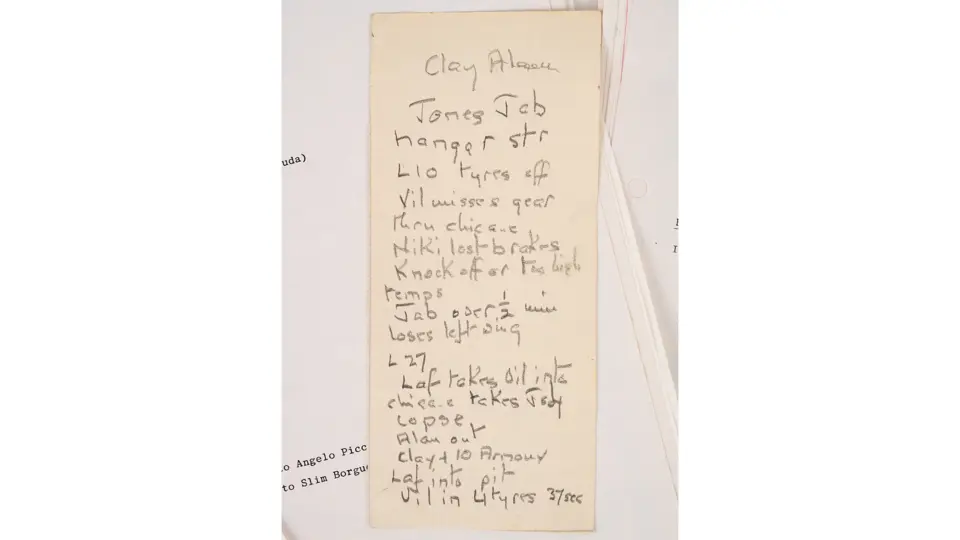 Clay Alan
Jones Jab
hangar str
L10 tyres off
Vil misses gear
thru chicane
Niki lost brakes
Knock off or too high
temps
Jab over ½ min
loses left wing
L 27
Laf takes Vil into
chicane takes Jody
Copse
Alan out
Clay + 10 Armoux
Laf into pit
Vil in 4 tyres 37sec
uda)
o Angelo Picc
to Slim Borgu